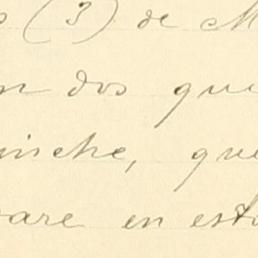 (3) de M
en dos que
inche, que
pare en esto